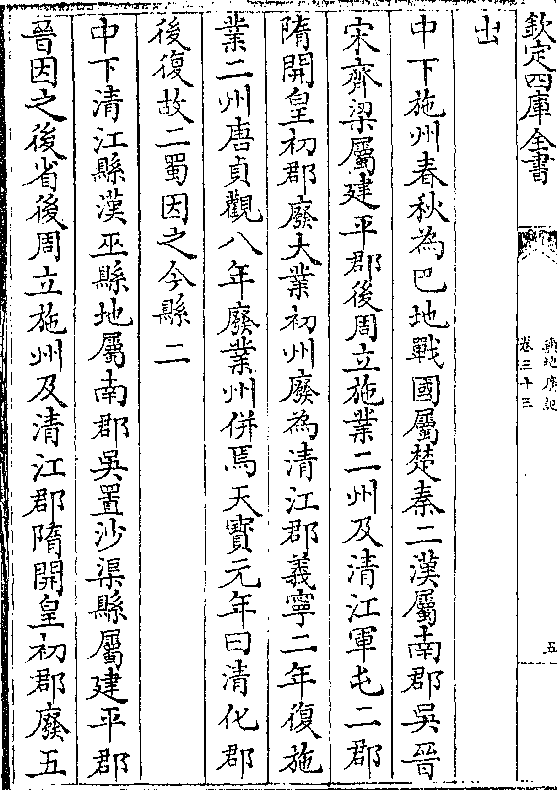 欽定四庫全書
輿地廣記
卷三十三
五
出
中下施州春秋為巴地戰國屬楚秦二漢屬南郡吳晉
宋齊梁屬建平郡後周立施業二州及清江軍屯二郡
隋開皇初郡廢大業初州廢為清江郡義寧二年復施
業二州唐貞觀八年廢業州併焉天寶元年曰清化郡
後復故二蜀因之今縣二
中下清江縣漢巫縣地屬南郡吳置沙渠縣屬建平郡
晉因之後省後周立施州及清江郡隋開皇初郡廢五